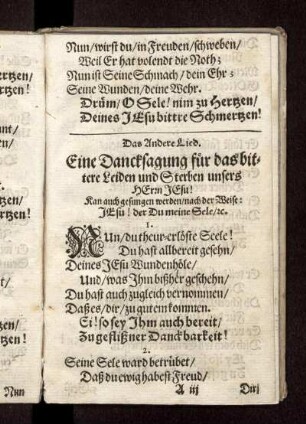 Nun/ wirst du/ in Freuden/ schweben/
Weil Er hat volendt die Noth;
Nun ist Seine Schmach/ dein Ehr;
Seine Wunden/ deine Wehr.
Drüm/ O Sele! nim zu Hertzen/
Deines JEsu bittre Schmertzen!
Das Andere Lied.
Eine Dancksagung für das bit-
tere Leiden und Sterben unsers
HErrn JEsu!
Kan auch gesungen werden/ nach der Weise:
JEsu! der Du meine Sele/ ec.
1.
NUn/ du theur-erlöste Seele!
Du hast allbereit gesehn/
Deines JEsu Wundenhöle/
Und/ was Jhm bißher geschehn/
Du hast auch zugleich vernommen/
Daß es/ dir/ zu gut einkommen.
Ei! so sey Jhm auch bereit/
Zu geflißner Danckbarkeit!
2.
Seine Sele ward betrübet/
Daß du ewig habest Freud/
A iij
hertzen/
ertzen!
unt/
rtzen/
rtzen!
n/
rtzen/
ertzen!
Nun